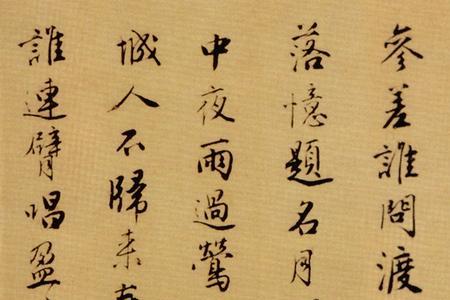 參差誰問渡
落憶題名月
中夜雨過鶯
城人不歸來
誰連臂唱盈